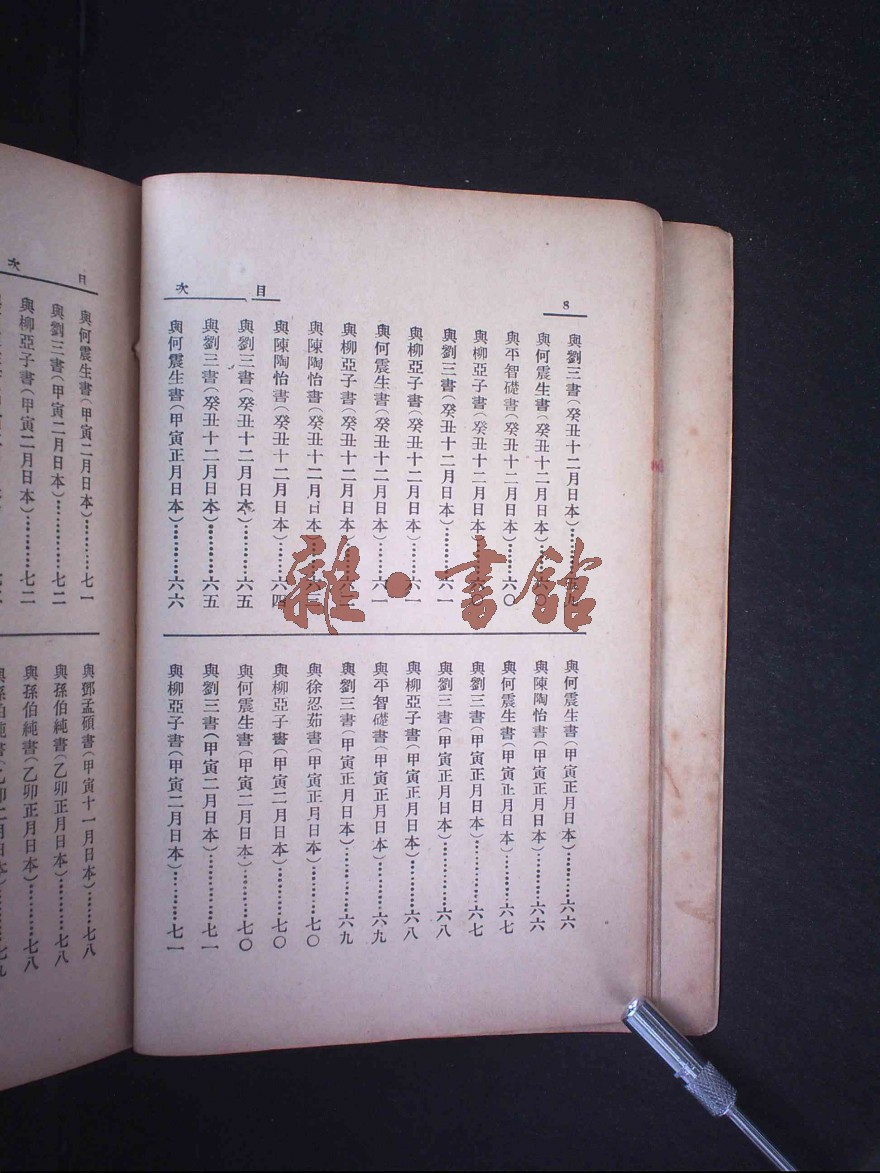 8
目次
與劉三書(癸丑十二月日本)…………
與何震生書(癸丑十二月日本)……〇
與平智礎書(癸丑十二月日本)……六〇
與柳亞子書(癸丑十二月日本)……〇
與劉三書(癸丑十二月日本)…………六一
與柳亞子書(癸丑十二月日本)……一
與何震生書(癸丑十二月日本)……六一
與柳亞子書(癸丑十二月日本)……
與陳陶怡書(癸丑十二月日本)……
與陳陶怡書(癸丑十二月日本)……六四
與劉三書(癸丑十二月日本)…………六五
與劉三書(癸丑十二月日本)…………六五
與何震生書(甲寅正月日本)…………六六
與何震生書(甲寅正月日本)…………六六
與陳陶怡書(甲寅正月日本)…………六六
與何震生書(甲寅正月日本)…………六七
與劉三書(甲寅正月日本)……………六七
與劉三書(甲寅正月日本)……………六八
與柳亞子書(甲寅正月日本)…………六八
與平智礎書(甲寅正月日本)…………六九
與劉三書(甲寅正月日本)……………六九
與徐忍茹書(甲寅正月日本)…………七〇
與柳亞子書(甲寅二月日本)…………七〇
與何震生書(甲寅二月日本)…………七〇
與劉三書(甲寅二月日本)……………七一
與柳亞子書(甲寅二月日本)…………七一
目次
與何震生書(甲寅二月日本)…………七一
與劉三書(甲寅二月日本)……………七二
與柳亞子書(甲寅二月日本)…………七二
與鄧孟碩書(甲寅十一月日本)………七八
與孫伯純書(乙卯正月日本)…………七八
與孫伯純書(乙卯正月日本)…………七八
與孫伯純書(乙卯二月日本)…………七九
雜·書館